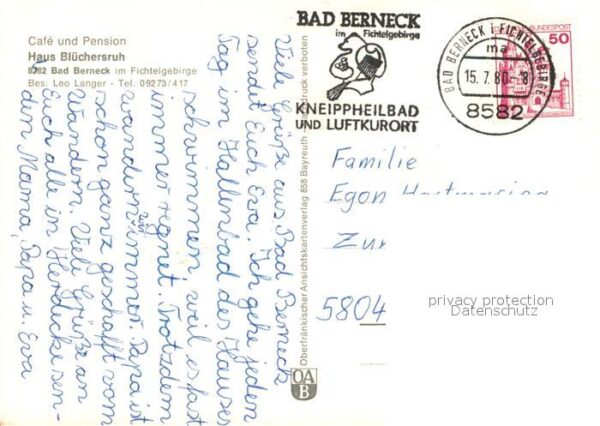 Café und Pension
Haus Blüchersruh
8582 Bad Berneck im Fichtelgebirge
Bes. Leo Langer - Tel. 09273/417
Viele Grüße aus Bad Berneck
sendet Euch Eva. Ich gehe jeden
Tag im Hallenbad des Hauses
schwimmen, weil es fast
immer regnet. Trotzdem
wandern wir immer. Papa ist
schon ganz geschafft vom
Wandern. Viele Grüße an
Euch alle in Herdecke sen-
den Mama, Papa u. Eva
Oberfränkischer Ansichtskartenverlag 858 Bayreuth druck verboten
OA
B
BAD BERNECK
im Fichtelgebirge
KNEIPPHEILBAD
UND LUFTKURORT
BAD BERNECK i FICHTELGEBIRGE
ma
15.7.80.-8
8582
BUNDESPOST
50
Familie
Egon
Zur
5804
privacy protection
Datenschutz